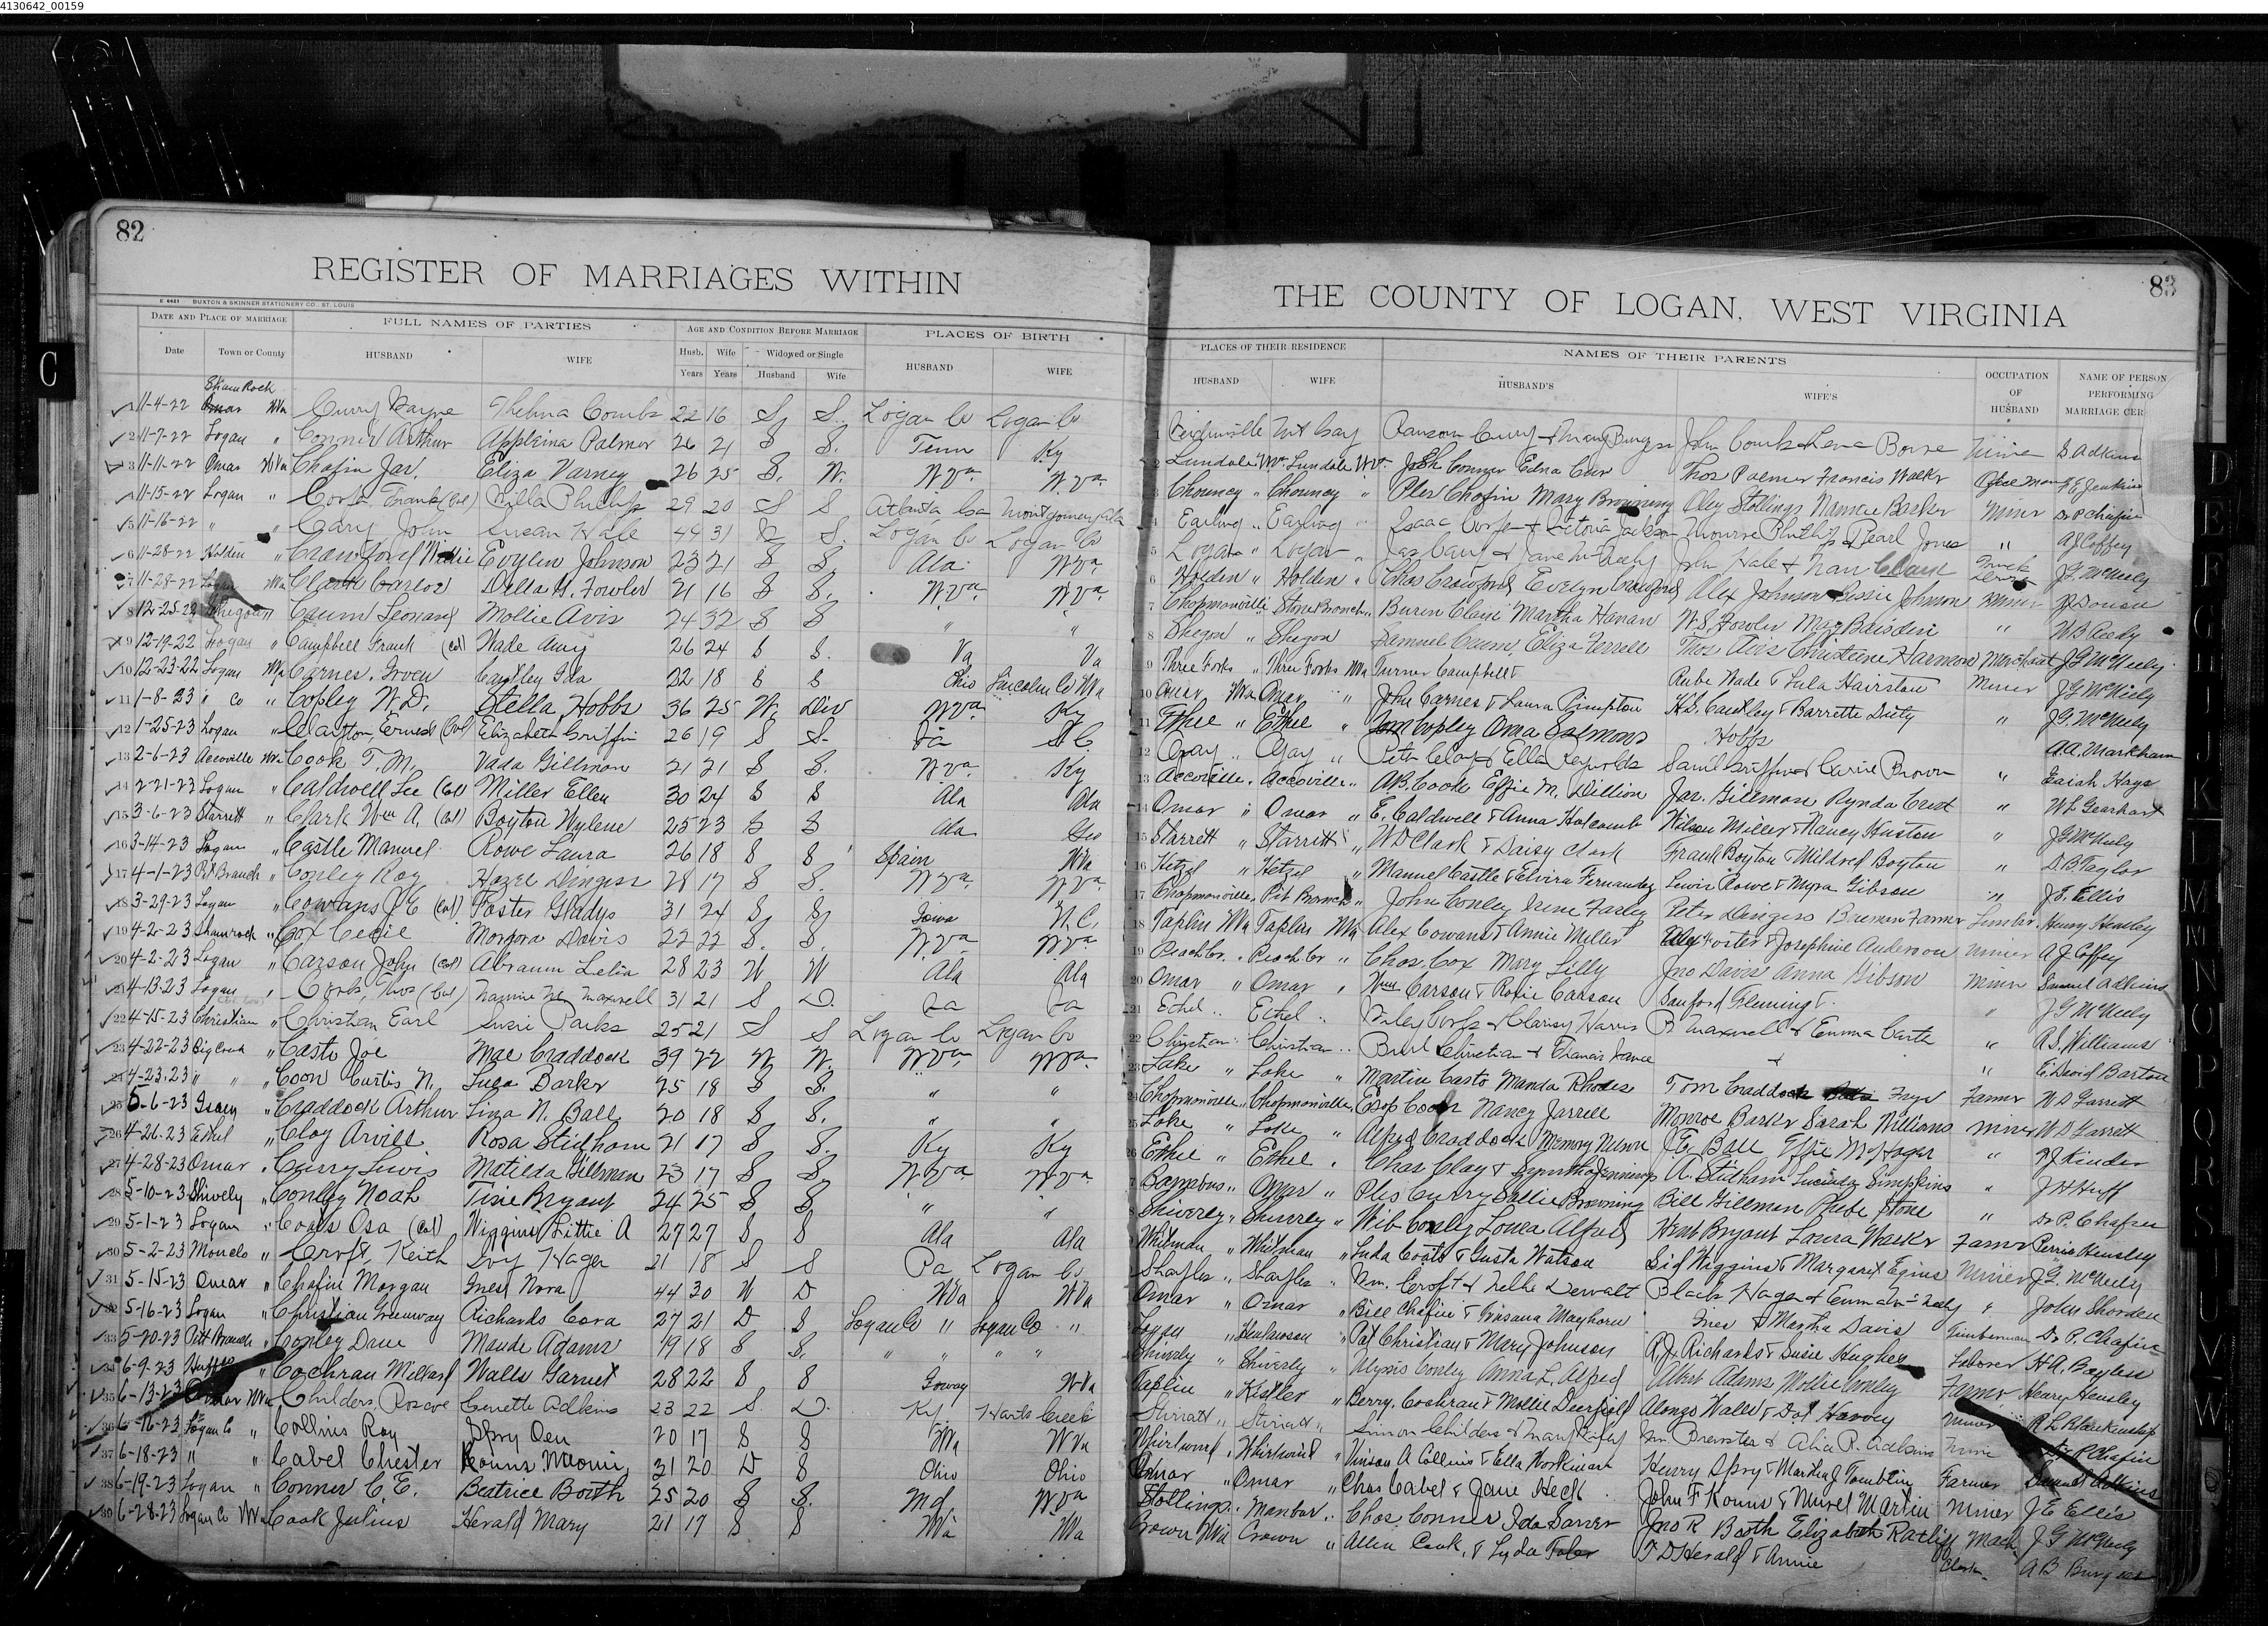 4130642_00159
82
REGISTER OF MARRIAGES WITHIN
E 4421 BUXTON & SKINNER STATIONERY CO., ST. LOUIS
DATE AND PLACE OF MARRIAGE FULL NAMES OF PARTIES AGE AND CONDITION BEFORE MARRIAGE PLACES OF BIRTH
Date Town or County HUSBAND WIFE Husb. Wife Widowed or Single HUSBAND WIFE
Years Years Husband Wife
ShamRock
1 11-4-22 Omar WVa Curry Wayne Thelma Combs 22 16 S. S. Logan Co Logan Co
2 11-7-22 Logan " Conner Arthur Applaina Palmer 26 21 S S. Tenn Ky
3 11-11-22 Omar WVa Chafin Jas. Eliza Varney 26 25 S. W. W.Va. W.Va.
11-15-22 Logan " Frank (Col) Phillips 29 20 S S Atlanta Ga Montgomery Ala
5 11-16-22 " " Cary John Susan Hale 44 31 S. Logan Co Logan Co
6 11-28-22 Holden " Crawford Willie Evylen Johnson 23 21 S S. Ala. W.Va
7 11-28-22 Logan WVa Clark Carlos Della G. Fowler 21 16 S S. W.Va. W.Va.
8 12-25-22 Shegon " Crum Leonard Mollie Avis 24 32 S S " "
9 12-19-22 Logan " Campbell Frank (Col) Wade Amy 26 24 S S. Va Va
10 12-23-22 Logan WVa Carnes, Groven Cantley Ida 22 18 S S Ohio Lincoln Co WVa
11 1-8-23 " Co " Copley W.D. Stella Hobbs 36 25 W. Div W.Va. Ky
12 1-25-23 Logan " Clayton, Ernest (Col) Elizabeth Griffin 26 19 S S. S.C.
13 2-6-23 Accoville WVa Cook T.M. Vada Gillman 21 21 S S. W.Va. Ky
14 2-21-23 Logan " Caldwell Lee (Col) Miller Ellen 30 24 S S Ala Ala
15 3-6-23 Starrett " Clark Wm A. (Col) Boyton Wylene 25 23 S S Ala Geo
16 3-14-23 Logan " Castle Manuel Rowe Laura 26 18 S S Spain WVa
17 4-1-23 Pit Branch " Conley Roy Hazel Dingess 28 17 S S. W.Va. W.Va.
18 3-29-23 Logan " Cowans J E (Col) Foster Gladys 31 24 S S Iowa N.C.
19 4-2-23 Shamrock " Cox Cecile Morgora Davis 22 22 S. S. W.Va. W.Va.
20 4-2-23 Logan " Carson John (Col) Abraum Lelia 28 23 W W Ala Ala
21 4-13-23 Logan " Thos (Col) Nannie Maxwell 31 21 S D.
22 4-15-23 Christian " Christian Earl Susie Parks 25 21 S S Logan Co Logan Co
23 4-22-23 Big Creek " Casto Joe Mae Craddock 39 22 W. W. W.Va. W.Va.
24 4-23-23 " " " Coon Curtis N. Lula Barker 25 18 S S. " "
25 5-6-23 Isom " Craddock Arthur Liza N. Ball 20 18 S S. " "
26 4-26-23 Ethel " Clay Arvill Rosa Stidham 21 17 S S. Ky Ky
27 4-28-23 Omar " Curry Lewis Matilda Gillman 23 17 S S. W.Va. W.Va.
28 5-10-23 Shively " Conley Noah Tisie Bryant 24 25 S S. " "
29 5-1-23 Logan " Coats Osa (Col) Wiggins Littie A 27 27 S S Ala Ala
30 5-2-23 Monclo " Croft, Keith Ivy Hager 21 18 S S Pa Logan Co
31 5-15-23 Omar " Chafin Morgan Ines Nora 44 30 W D WVa WVa
32 5-16-23 Logan " Christian Greenway Richards Cora 27 21 D S Logan Co " Logan Co "
33 5-20-23 Pitt Branch " Conley Dave Maude Adams 19 18 S S. " " " "
34 6-9-23 Huff Co " Cochran Millard Walls Garnet 28 22 S S WVa
35 6-13-23 Omar WVa Childers, Roscoe Genette Adkins 23 22 S. D. Ky Harts Creek
36 6-16-23 Logan Co " Collins Roy Spry Oen 20 17 S S WVa WVa
37 6-18-23 " " Cabel Chester Kouns Naomi 31 20 D S Ohio Ohio
38 6-19-23 Logan " Conner C.E. Beatrice Booth 25 20 S S. Md. W.Va
39 6-28-23 Logan Co WVa Cook Julius Herald Mary 21 17 S S WVa WVa
83
THE COUNTY OF LOGAN, WEST VIRGINIA
PLACES OF THEIR RESIDENCE NAMES OF THEIR PARENTS OCCUPATION OF HUSBAND NAME OF PERSON PERFORMING MARRIAGE CER
HUSBAND WIFE HUSBAND'S WIFE'S
1 Mt Gay Ransom Curry & Mary Burgess John Combs & Lena Bone Miner S Adkins
2 Lundale WV. Lundale WV. Conner Edna Thos Palmer Francis Walker Jenkins
3 Chauncy " Chauncy " Ples Chafin Mary Browning Oley Stollings Nannie Barker Miner Dr P Chafin
4 Earling " Earling " Isaac & Jackson Monroe Phillips Pearl Jones " A J Coffey
5 Logan " Logan " Jas Cary & Jane McNeely John Hale & Nan Clark Truck J.G. McNeely
6 Holden " Holden " Chas Crawford Evelyn Crawford Alex Johnson Bessie Johnson Miner
7 Chapmanville Stone Branch " Buren Clark Martha Hanan W.S. Fowler May Baisden " W B Reedy
8 Shegon " Shegon Samuel Crum, Eliza Ferrell Thos Avis Christeene Harmon Merchant J G McNeely
9 Three Forks " Three Forks WVa Turner Campbell & Rube Wade & Lula Hairston Miner J G McNeely
10 Omar WVa Omar " John Carnes & Laura Pimpton H.S. Cantley & Barrette Duty " J.G. McNeely
11 Ethel " Ethel " Tom Copley Oma Salmons Hobbs A.A. Markham
12 " Ella Reynolds Saml Griffin & Carrie Brown " Isaiah Hays
13 Accoville " Accoville " A.B. Cook Effie M. Dillion Jas. Gillman Rynda Crist " W L Gearhart
14 Omar " Omar " E. Caldwell & Anna Holcomb Wilson Miller & Nancy Huston " J G McNeely
15 Starrett " Starrett " W D Clark & Daisy Clark Frank Boyton & Mildred Boyton " D.B. Taylor
16 Hetzel " Hetzel " Manuel Castle & Elvira Fernandez Lewis Rowe & Myra Gibson " J.E. Ellis
17 Chapmanville " Pit Branch " John Conley Irene Farley Peter Dingess Farmer Timber. Henry Hensley
18 Taplin WVa Taplin WVa Alex Cowans & Annie Miller Alex Foster & Josephine Anderson Miner A J Coffey
19 Peach Cr. " Peach Cr " Chas. Cox Mary Lilly Jno Davis Anna Gibson Miner Samuel Adkins
20 Omar " Omar " Wm Carson & Rosie Carson Sanford Fleming & " J G McNeely
21 Ethel " Ethel " Clarisy Harris Maxwell & Emma " R.S. Williams
22 Christian " Christian " Burl Christian & Francis Vance & " E. David Barton
23 Lake " Lake " Martin Casto Manda Rhodes Tom Craddock Frye Farmer W D Garrett
24 Chapmanville " Chapmanville Esop Coon Nancy Jarrell Monroe Barker Sarah Williams Miner W D Garrett
25 Lake " Lake " Alfred Craddock Memory Nelson J.E. Ball Effie McHager " Kinder
26 Ethel " Ethel " Chas Clay & Jennings A. Stidham Lucinda Simpkins " J H Huff
Barnabus " Omar " Ples Curry Sallie Browning Bill Gillman Phebe Stone " Dr P. Chafin
" " Wib Conley Louea Alford Bryant Laura Walker Farmer Perrie Hensley
Whitman " Whitman " Luda Coats & Gusta Watson Sid Wiggins & Margaret Egins Miner J.G. McNeely
Sharples " Sharples " Wm. Croft & Nellie Dewalt Black Hager & Emma McNeely " John Shorden
Omar " Omar " Bill Chafin & Mayhorn Ines & Martha Davis Timberman Dr P. Chafin
Logan " Henlawson " Pat Christian & Mary Johnson R.J. Richards & Susie Hughes Laborer H.A. Bayless
Shively " Shively " Ulysis Conley Anna L. Alford Albert Adams Mollie Conley Farmer Henry Hensley
Taplin " Kistler " Berry Cochran & Mollie Deerfield Alonzo Walls & Dot Harvey Miner R L Blankenship
Stirratt " Stirratt " Simon Childers & Mary Wm. Brewster & Alice R. Adkins Miner Dr P Chafin
Whirlwind " Whirlwind " Vinson A Collins & Ella Workman Henry Spry & Martha J Tomblin Farmer Samuel Adkins
Omar " Omar " Chas Cabel & Jane Heck John F Kouns & Murel Martin Miner J E Ellis
Stollings " Manbar " Chas Conner Ida Sarver Jno R Booth Elizabeth Ratliff Mach J G McNeely
Crown WVa Crown " Allen Cook, & Lyda Toler T D Herald & Annie Clerk A B Burgess
C
D
E
F
G
H
I
J
K
L
M
N
O
P
Q
R
S
U
V
W